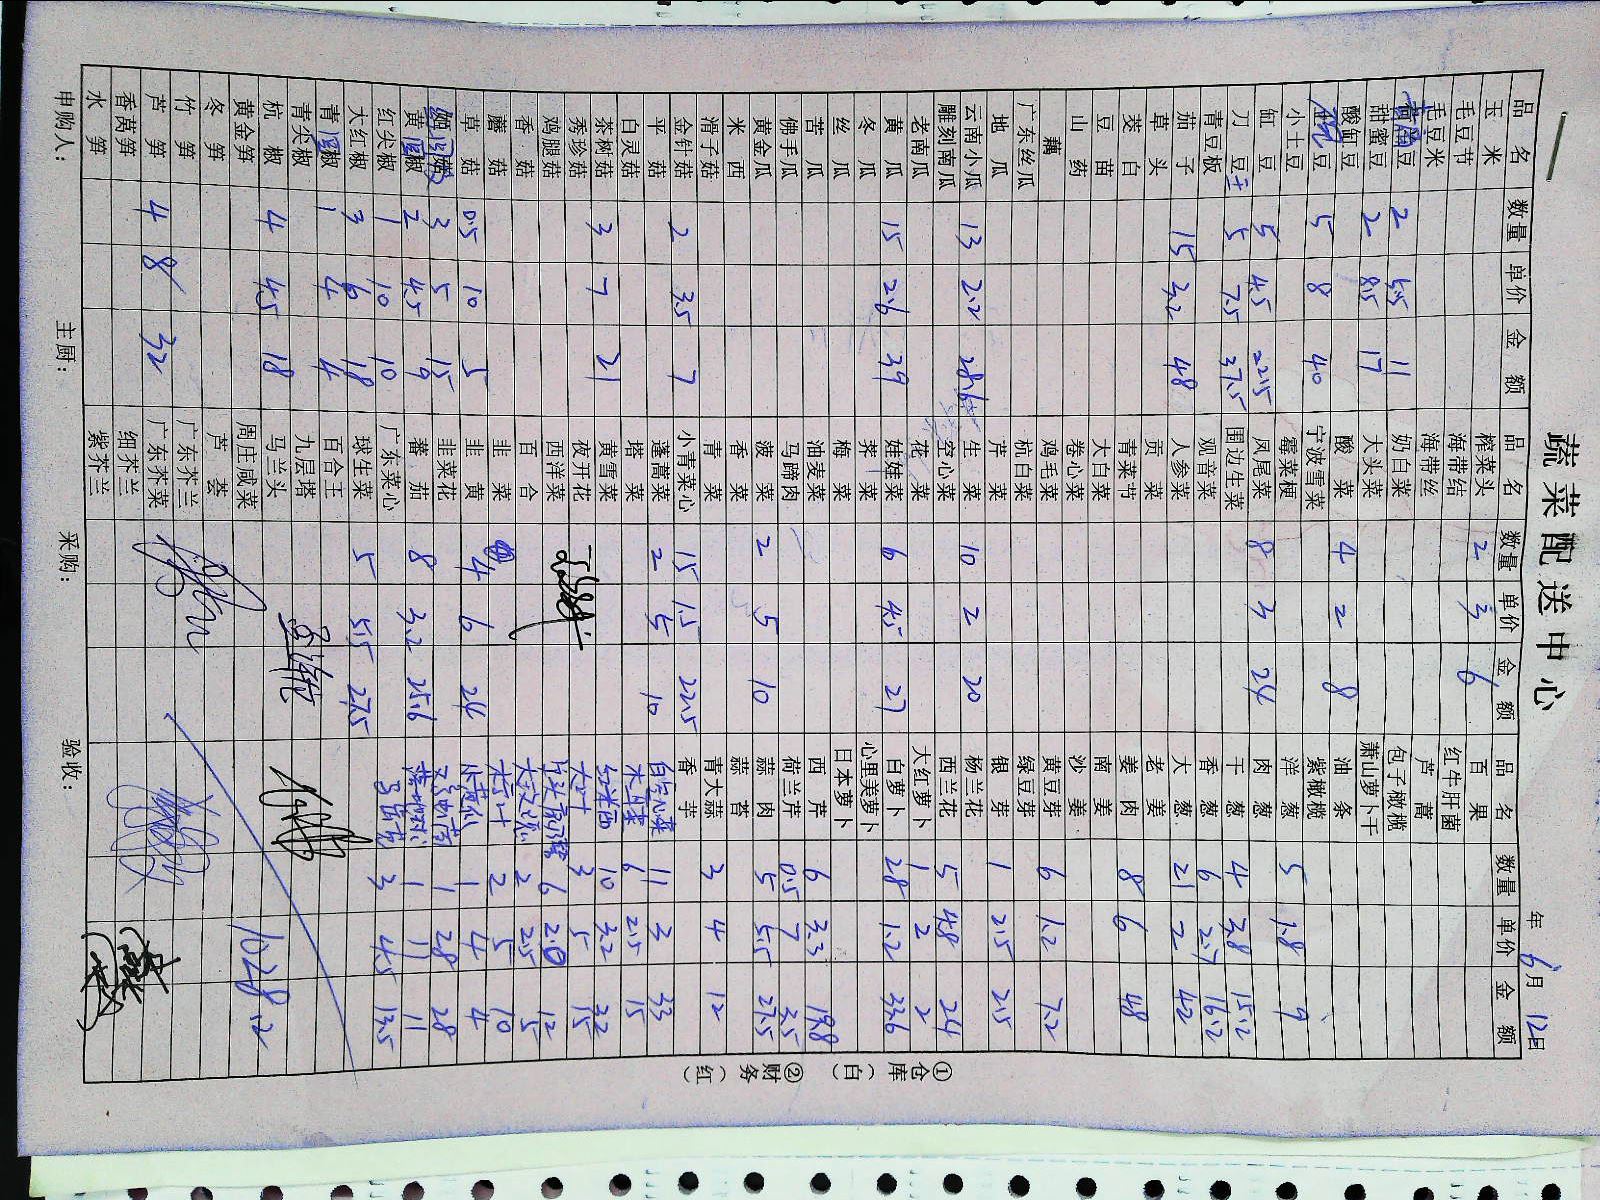 蔬菜配送中心
年 6月 12日
品名 数量 单价 金额 品名 数量 单价 金额 品名 数量 单价 金额
玉米 榨菜头 2 3 6 百果
毛豆节 海带结 红牛肝菌
毛豆米 海带丝 芦蒿
豆 2 5.5 11 奶白菜 包子橄榄
甜蜜豆 2 8.5 17 大头菜 萧山萝卜干
酸缸豆 酸菜 4 2 8 油条
豆 5 8 40 宁波雪菜 紫橄榄
小土豆 霉菜梗 洋葱 5 1.8 9
缸豆 5 4.5 22.5 凤尾菜 8 3 24 肉葱
刀豆 5 7.5 37.5 围边生菜 干葱 4 3.8 15.2
青豆板 观音菜 香葱 6 2.7 16.2
茄子 15 3.2 48 人参菜 大葱 21 2 42
草头 贡菜 老姜
茭白 青菜节 姜肉 8 6 48
豆苗 大白菜 南姜
山药 卷心菜 沙姜
藕 鸡毛菜 黄豆芽 6 1.2 7.2
广东丝瓜 杭白菜 绿豆芽
地瓜 芹菜 银芽 1 2.5 2.5
云南小瓜 13 2.2 28.6 生菜 10 2 20 杨兰花
雕刻南瓜 空心菜 西兰花 5 4.8 24
老南瓜 花菜 大红萝卜 1 2 2
黄瓜 15 2.6 39 娃娃菜 6 4.5 27 白萝卜 28 1.2 33.6
冬瓜 荠菜 心里美萝卜
丝瓜 梅菜 日本萝卜
苦瓜 油麦菜 西芹 6 3.3 19.8
佛手瓜 马蹄肉 荷兰芹 0.5 7 3.5
黄金瓜 菠菜 2 5 10 蒜肉 5 5.5 27.5
米西 香菜 蒜苔
滑子菇 青菜 青大蒜 3 4 12
金针菇 2 3.5 7 小青菜心 15 1.5 22.5 香芋
平菇 蓬蒿菜 2 5 10 白空心菜 11 3 33
白灵菇 塔菜 木耳菜 6 2.5 15
茶树菇 3 7 21 黄雪菜 红米苋 10 3.2 32
秀珍菇 夜开花 大叶 3 5 15
鸡腿菇 西洋菜 6 2.0 12
香菇 百合 2 2.5 5
蘑菇 韭菜 2 5 10
草菇 0.5 10 5 韭黄 4 6 24 1 4 4
菇 3 5 15 韭菜花 1 28 28
黄圆椒 2 4.5 9 蕃茄 8 3.2 25.6 1 11 11
红尖椒 1 10 10 广东菜心 3 4.5 13.5
大红椒 3 6 18 球生菜 5 5.5 27.5
青圆椒 1 4 4 百合王
青尖椒 九层塔
杭椒 4 4.5 18 马兰头
黄金笋 周庄咸菜 1028.2
冬笋 芦荟
竹笋 广东芥兰
芦笋 4 8 32 广东芥菜
香莴笋 细芥兰
水笋 紫芥兰
申购人: 主厨: 采购: 验收:
①仓库(白) ②财务(红)